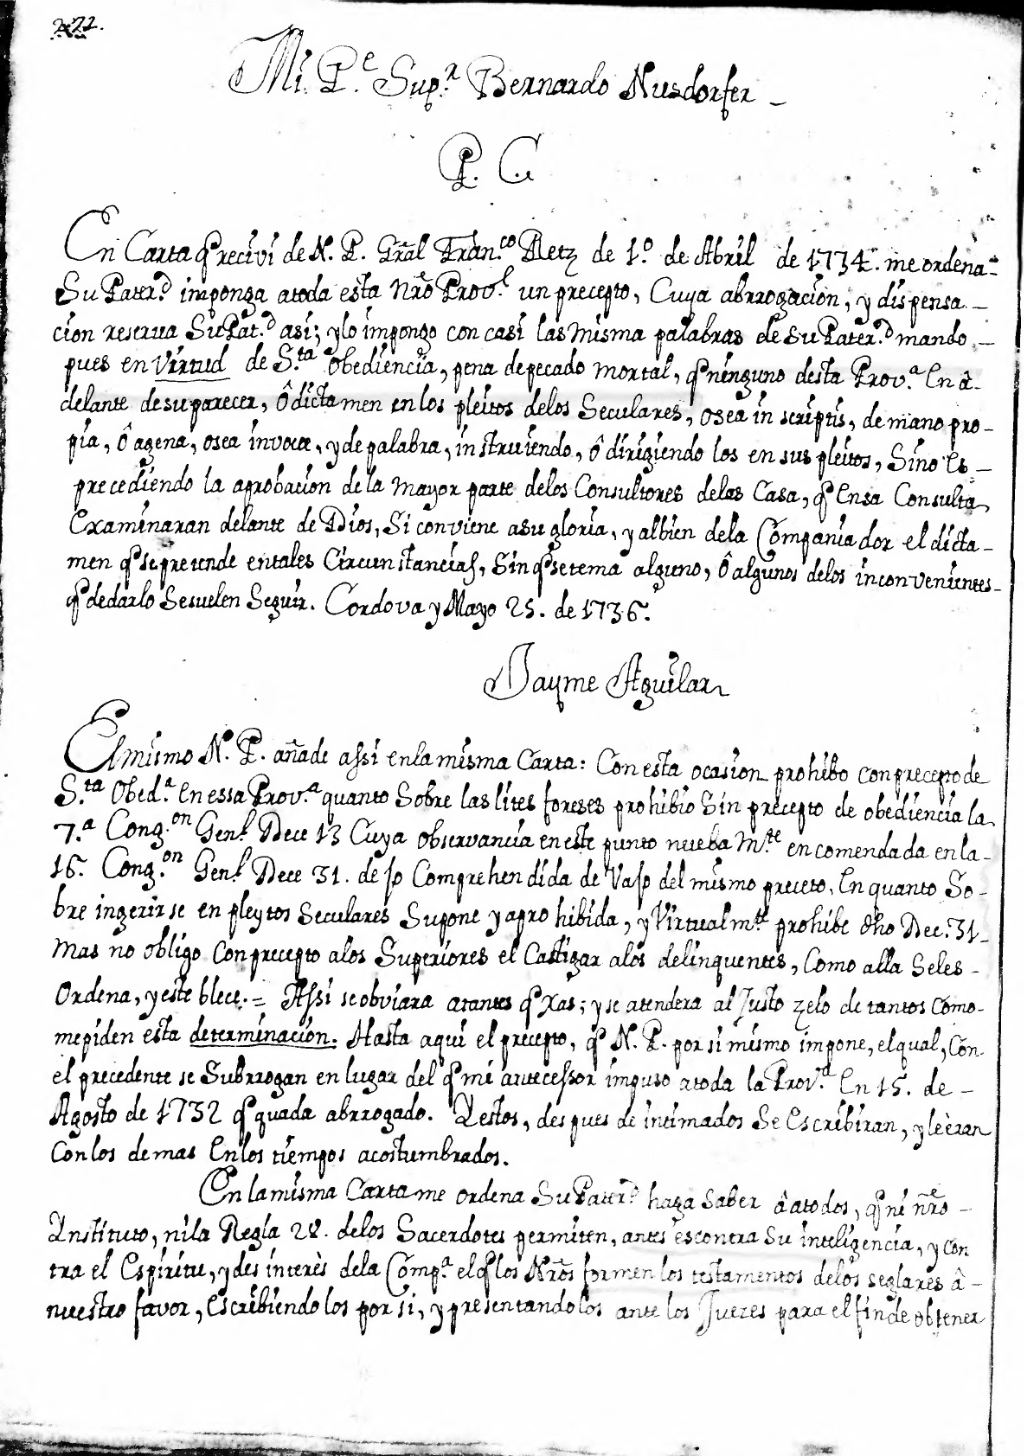 222.
Mi. P.e Sup.r Bernardo Nusdorfer
P. C.
En Carta q recivi de N. P. Gral Fran.co Retz de 1.o de Abril de 1734. me ordena
Su Pater.d imponga atoda esta Nrã Prov.l un precepto, Cuya abrrogacion, y dispensa-
cion reserva Su Pat.d asi; y lo impongo con casi las misma palabras de Su Pater.d mando-
pues en Virtud de S.ta obediencia, pena de pecado mortal, q ninguno desta Prov.a En â-
delante de su parecer, ô dictamen en los pleitos delos Seculares, o sea in scriptis, de mano pro-
pia, ô agena, osea in voce, y de palabra, instruiendo, ô dirigiendo los en sus pleitos, Sino es-
precediendo la aprobacion de la mayor parte delos Consultores delas Casa, q Ensa Consulta
Examinaran delante de Dios, Si conviene asu gloria, y albien dela Compañia dar el dicta-
men q se pretende entales Circunstancias, Sin q se tema alguno, ô algunos delos inconvenientes-
q dedarlo Sesuelen Seguir. Cordova y Mayo 25. de 1736.
Jayme Aguilar
El mismo N. P. añade assi en la misma Carta: Con esta ocasion prohibo con precepto de
S.ta Obed.a En essa Prov.a quanto Sobre las lites foreses prohibio Sin precepto de obediencia la
7.a Cong.on Gen.l Dece 13 Cuya observancia en este punto nueba M.te encomendada en la-
16. Cong.on Gen.l Dece 31. de so Comprehendida de Vaso del mismo preceto, En quanto So-
bre ingerirse en pleytos Seculares Supone ya prohibida, y Virtualm.te prohibe dho Dec. 31-
Mas no obligo Con precepto alos Superiores el Castigar alos delinquentes, Como alla Seles-
Ordena, y esteblece. = Assi se obviara atantas qxas; y se atendera al Justo zelo de tantos como-
mepiden esta determinacion. Hasta aqui el precepto, q N. P. por si mismo impone, el qual, Con
el precedente se Subrrogan en lugar del q mi antecessor impuso atoda la Prov.a En 15. de-
Agosto de 1732 q quada abrrogado. Y estos, despues de intimados Se Escribiran, y leeran
Con los demas En los tiempos acostumbrados.
En la misma Carta me ordena Su Pater.d haga Saber â atodos, q ni nrõ-
Ynstituto, ni la Regla 28. delos Sacerdotes permiten, antes es contra Su inteligencia, y con
tra el Espiritu, y des interès dela Comp.a el q los Nrõs formen los testamentos delos seglares â-
nuestro favor, Escribiendo los por si, y presentandolos ante los Juezes para el fin de obtener